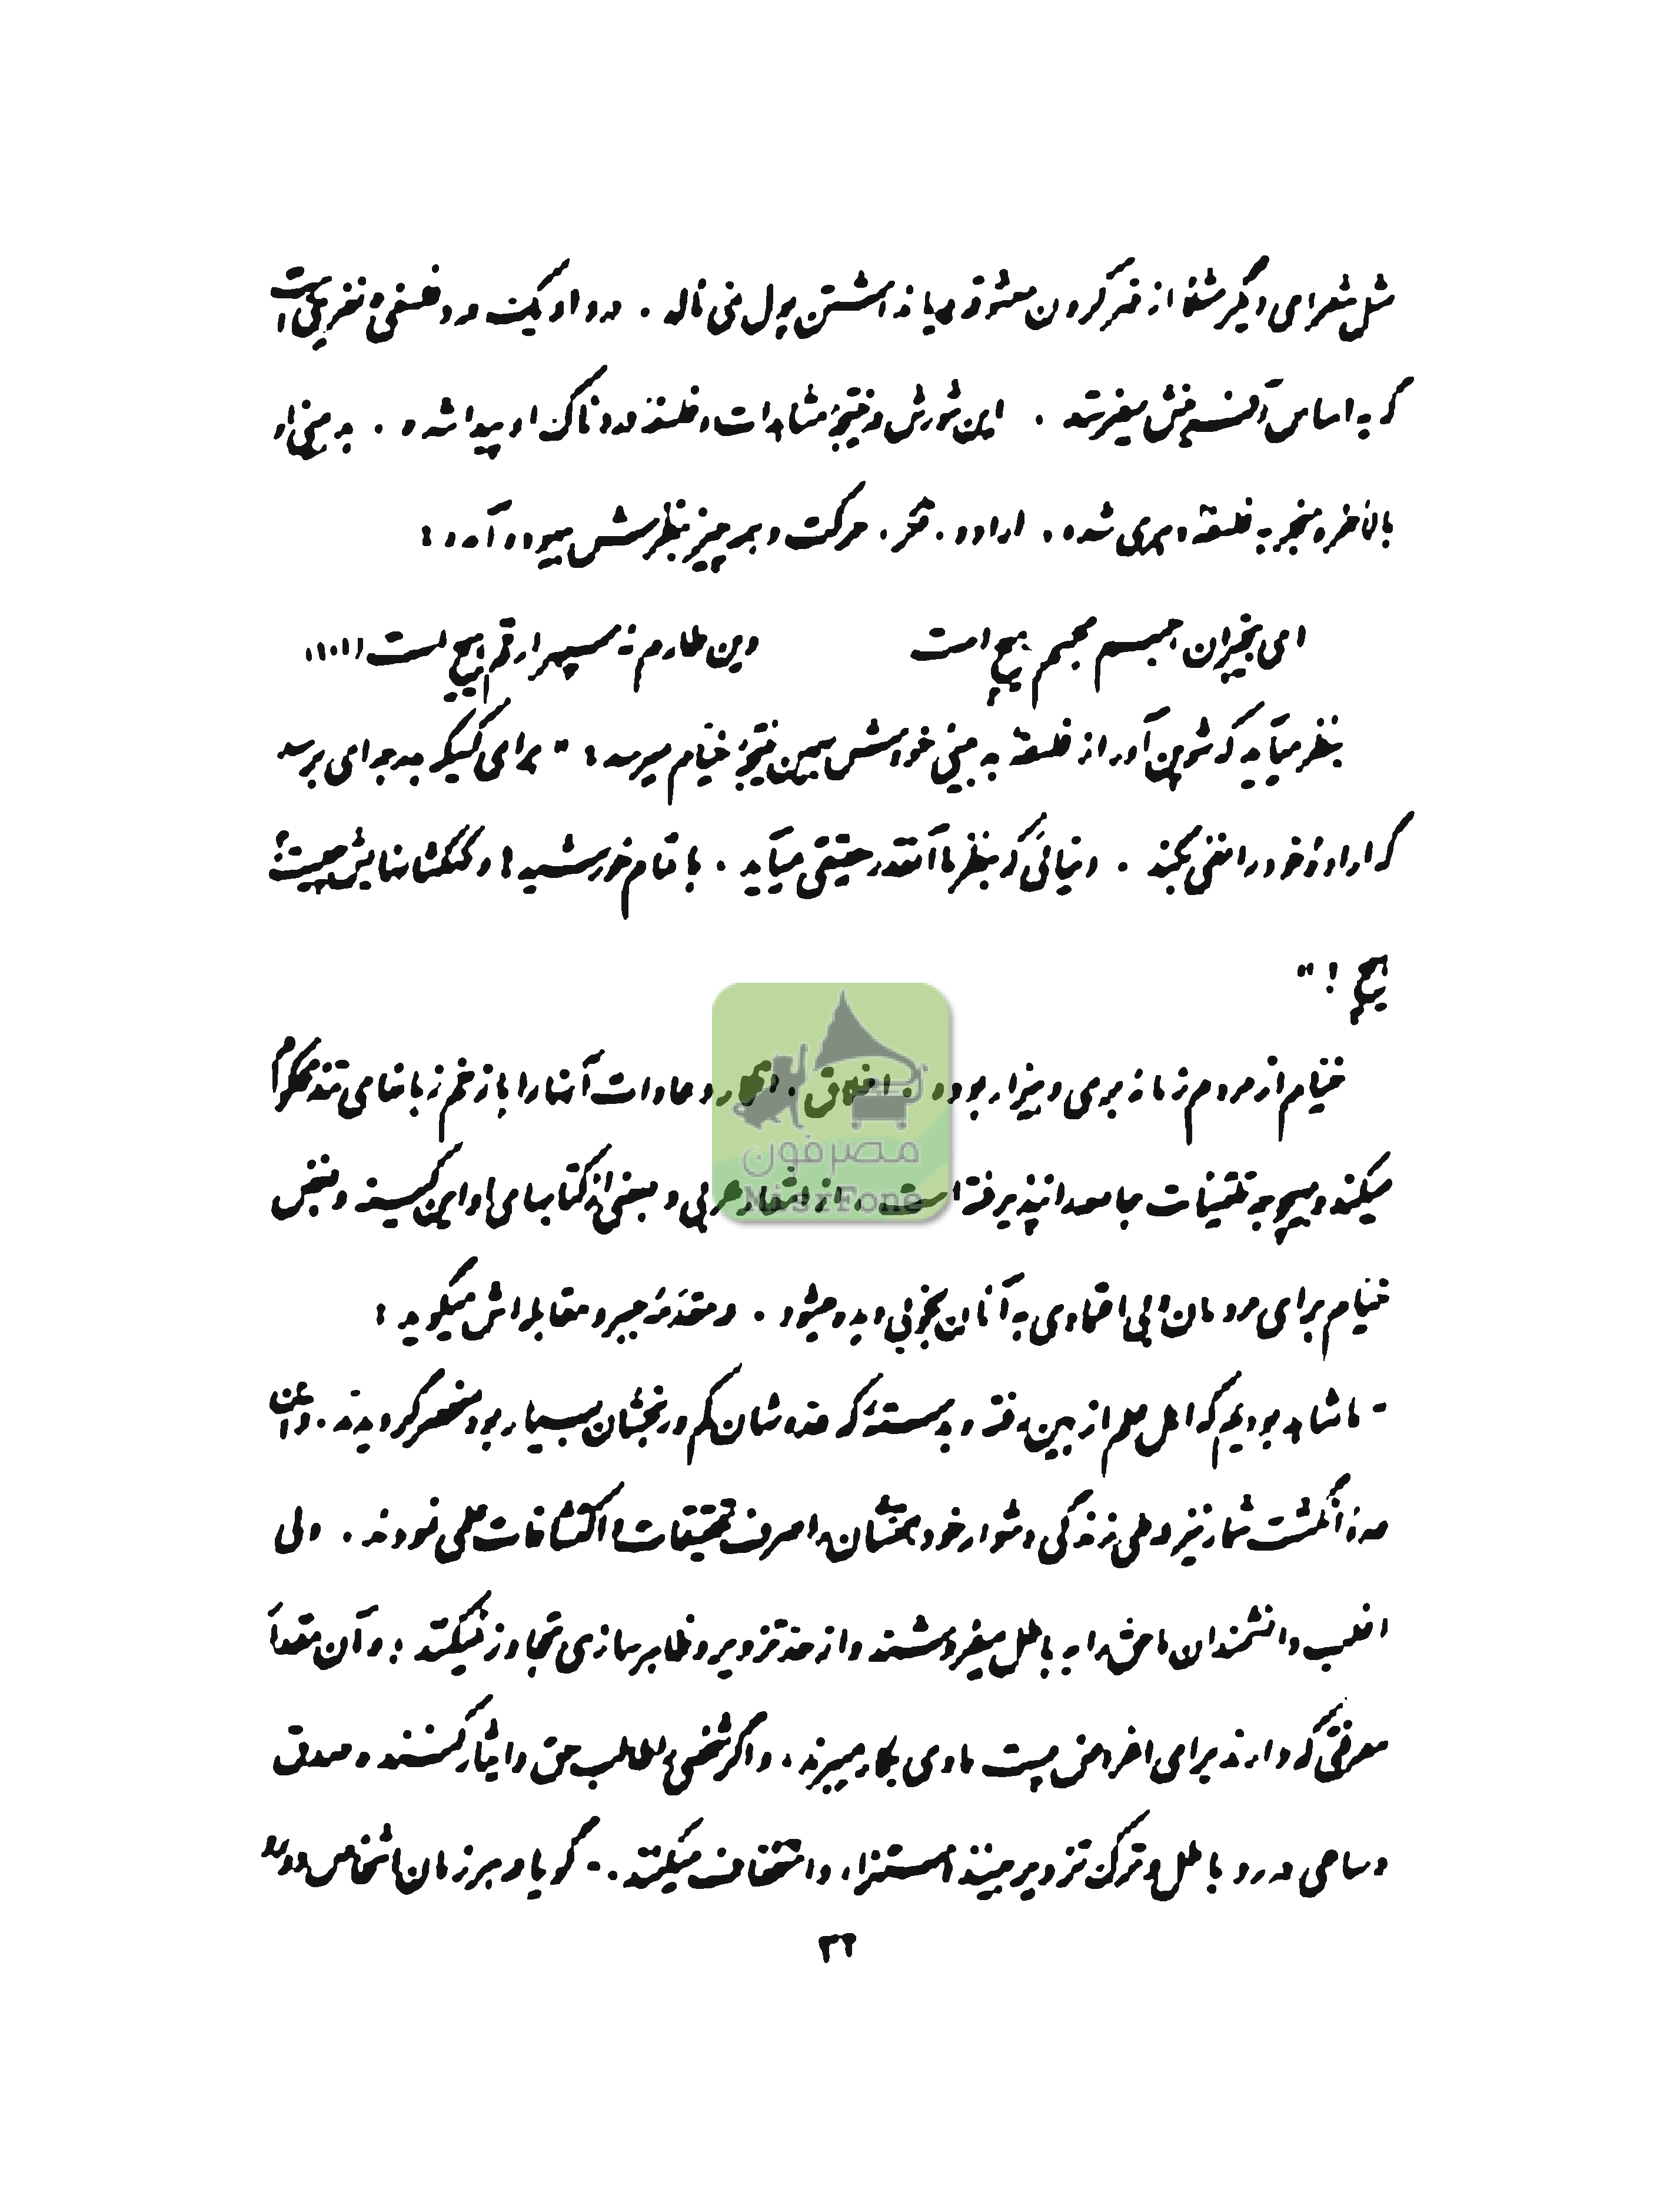 مثل شعرای دیگر مثلاً از قهر کردن معشوقه و یا نداشتن پول نمی‌ناله . درد او یک درد فلسفی و نفرینی است
که به اساس آفرینش میفرستد . این شورش در نتیجهٔ مشاهدات و فلسفهٔ دردناک او پیدا شده . بدبینی او
بالاخره منجر به فلسفهٔ دهری شده . اراده . فکر . حرکت و همه چیز بنظرش بیهوده آمده :
ای بیخبران جسم مجسم هیچ است وین طارم نه سپهر ارقم هیچ است (۱۰۱)
بنظر میآید که شوپن‌آور از فلسفهٔ بدبینی خودش بهمین نتیجهٔ خیام میرسد : " برای کسیکه بدرجه‌ای برسد
که ارادهٔ خود را نفی بکند . دنیائی که بنظر ما آنقدر حقیقی میآید . با تمام خورشیدها و کهکشانهایش چیست؟
هیچ ! "
خیام از مردم زمانه بری و بیزار بوده . اخلاق . افکار و عادات آنها را با زخم زبانهای تند محکوم
میکند و بهیچوجه تلقینات جامعه را نپذیرفته است . از اشعار عربی و بعضی از کتابهای او این کینه و بغض
خیام برای مردمان و بی‌اعتمادی به آنان بخوبی دیده میشود . در مقدمهٔ جبر و مقابله‌اش میگوید :
- ما شاهد بودیم که اهل علم از بین رفته و بدسته‌ئی که عده‌شان کم و رنجشان بسیار بود منحصر گردیدند . و این
عدهٔ انگشت شمار نیز در طی زندگی دشوار خود همتشان را صرف تحقیقات و اکتشافات علمی نمودند . ولی
اغلب دانشمندان ما حق را به باطل میفروشند و از حد تزویر و ظاهرسازی تجاوز نمیکنند ؛ و آن مقدار
معرفتی که دارند برای اغراض پست مادی بکار میبرند . و اگر شخصی را طالب حق و ایثار کننده و صدق
و ساعی در رد باطل و ترک تزویر بینند استهزاء و استخفاف میکنند .- گویا در هر زمان اشخاص دورو
۳۲
مصرفون
MisrFone